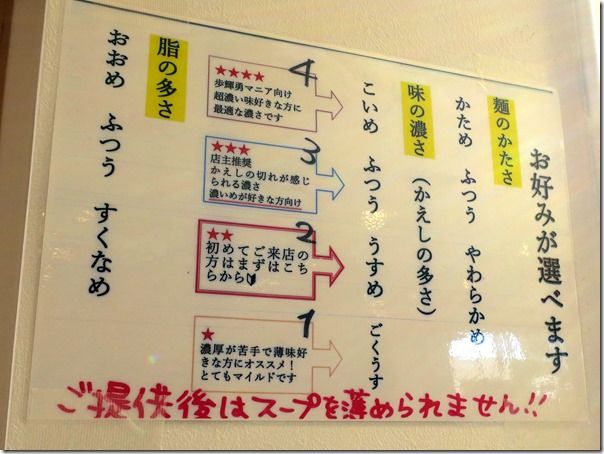 お好みが選べます
麺のかたさ
かため ふつう やわらかめ
味の濃さ (かえしの多さ)
こいめ ふつう うすめ ごくうす
4
★★★★
歩輝勇マニア向け
超濃い味好きな方に
最適な濃さです
3
★★★
店主推奨
かえしの切れが感じ
られる濃さ
濃いめが好きな方向け
2
★★
初めてご来店の
方はまずはこち
らから
1
★
濃厚が苦手で薄味好
きな方にオススメ!
とてもマイルドです
脂の多さ
おおめ ふつう すくなめ
ご提供後はスープを薄められません!!